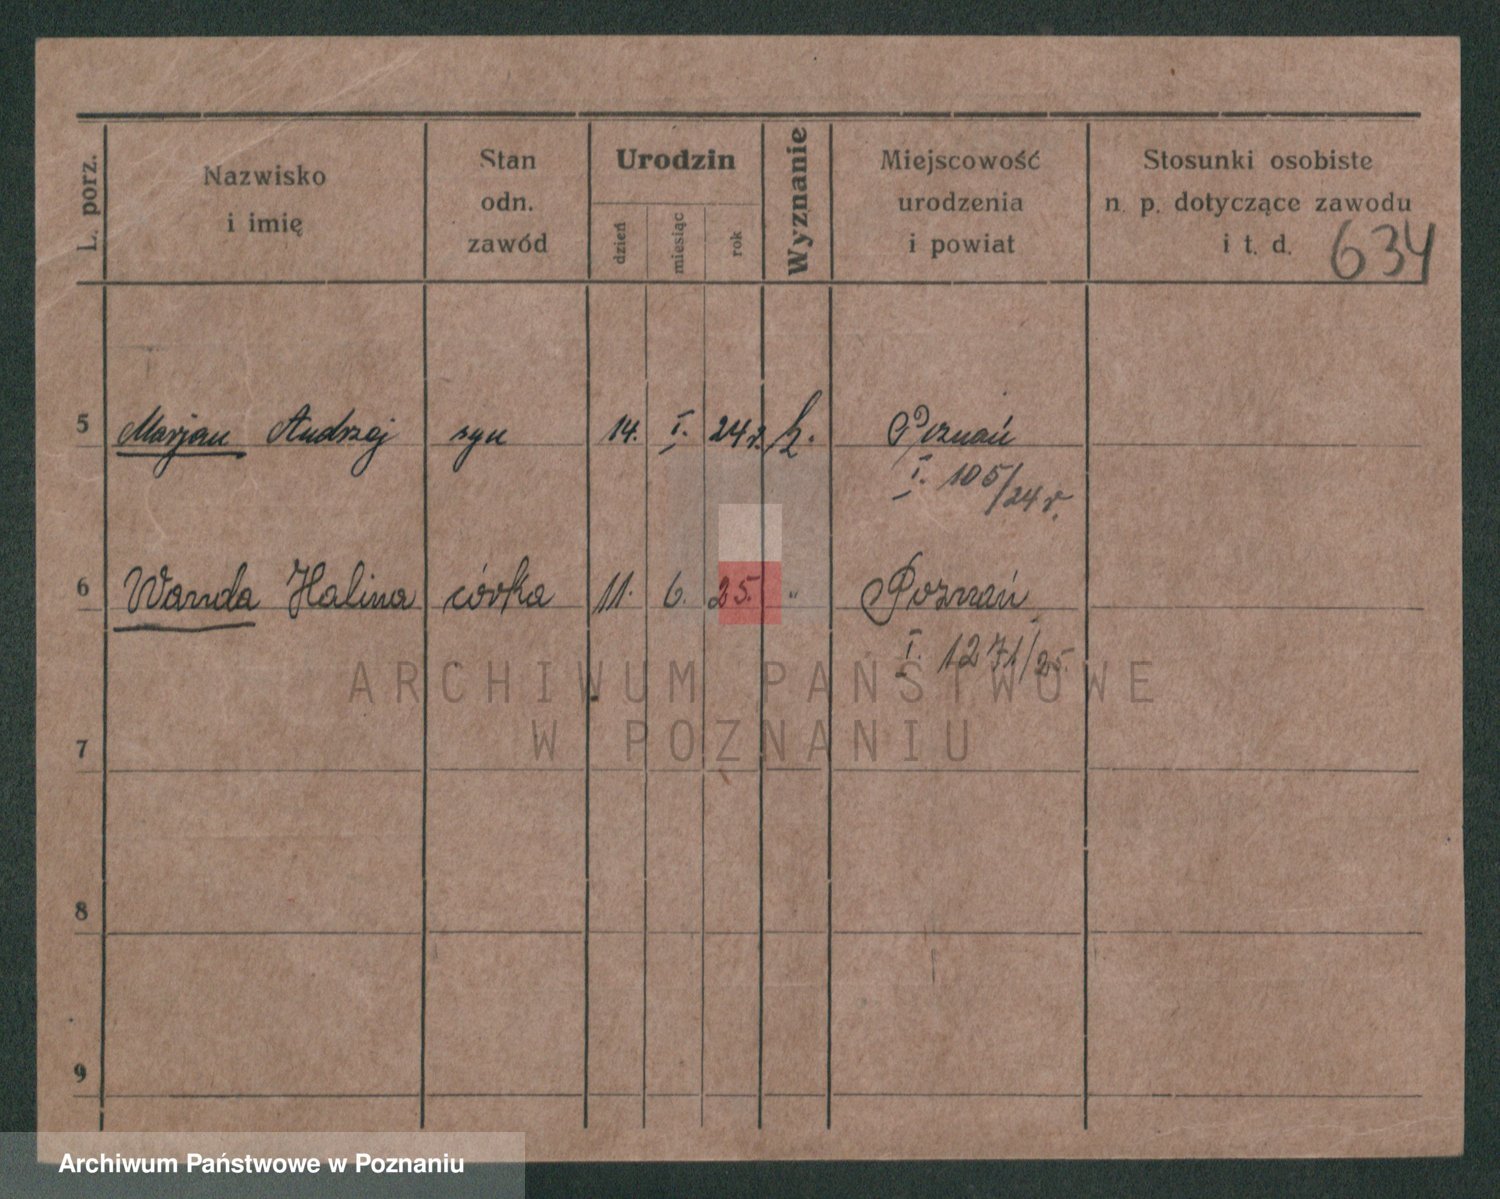 L. porz.
Nazwisko
i imię
Stan
odn.
zawód
Urodzin
dzień
miesiąc
rok
Wyznanie
Miejscowość
urodzenia
i powiat
Stosunki osobiste
n. p. dotyczące zawodu
i t. d.
634
5 Marjan Andrzej syn 14. I. 24 r. k. Poznań
I. 105/24 r.
6 Wanda Halina córka 11. 6. 25. " Poznań
I. 1271/25.
ARCHIWUM PAŃSTWOWE
W POZNANIU
7
8
9
Archiwum Państwowe w Poznaniu